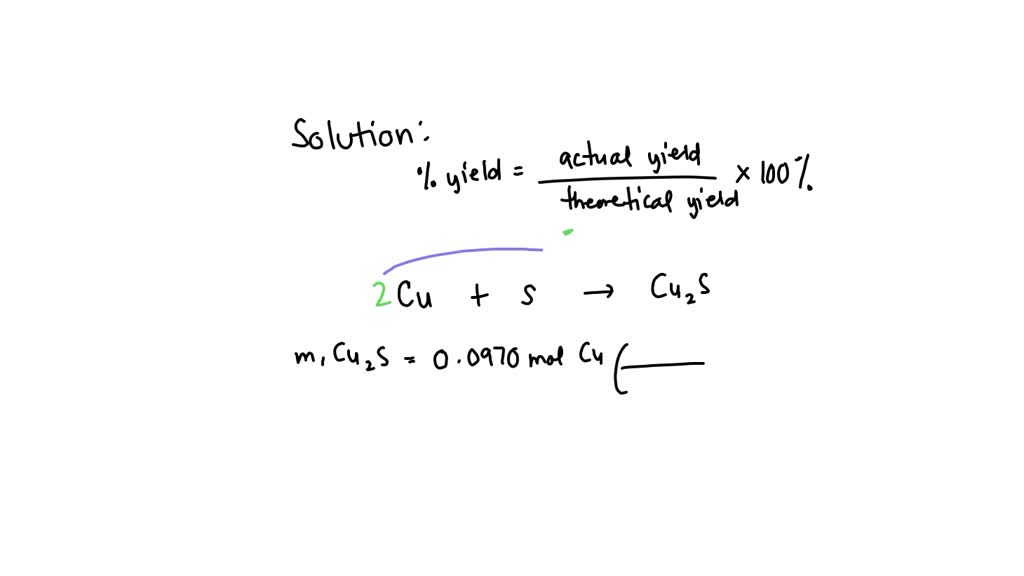 Solution:
% yield = actual yield / theoretical yield × 100%
2Cu + S → Cu₂S
m, Cu₂S = 0.0970 mol Cu (